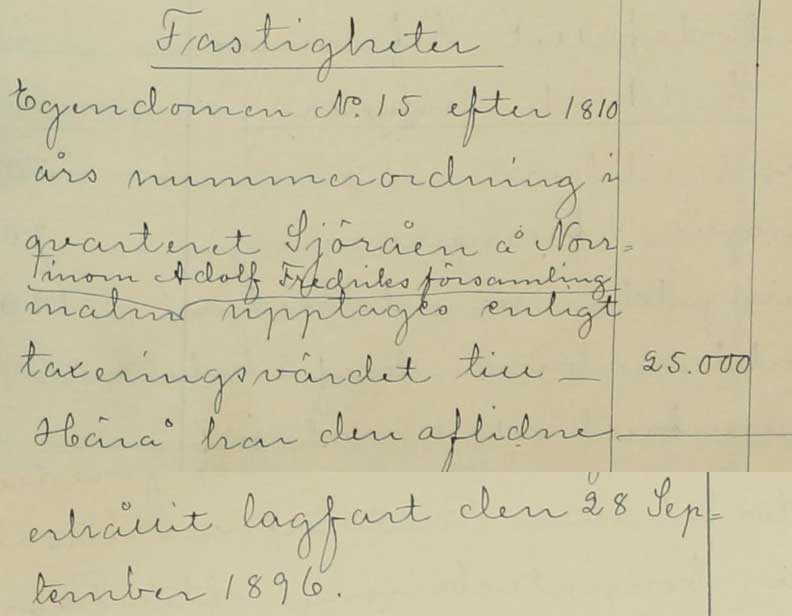 Fastigheter
Egendomen No. 15 efter 1810
års nummerordning i
qvarteret Sjöråen å Norr=
inom Adolf Fredriks församling
malm upptages enligt
taxeringsvärdet till — 25.000
Härå har den aflidne
erhållit lagfart den 28 Sep=
tember 1896.